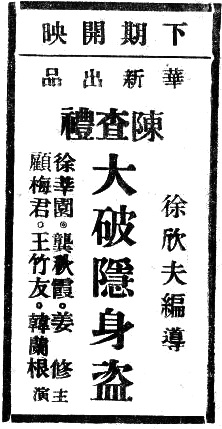 下期開映
華新出品
陳查禮
徐欣夫編導
大破隱身盜
徐莘園。龔秋霞。姜 修
顧梅君。王竹友。韓蘭根
主演